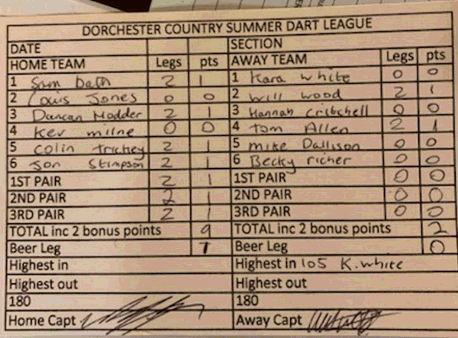 DORCHESTER COUNTRY SUMMER DART LEAGUE
DATE SECTION
HOME TEAM Legs pts AWAY TEAM Legs pts
1 Sam bath 2 1 1 Kara white 0 0
2 Louis Jones 0 0 2 will wood 2 1
3 Duncan Hodder 2 1 3 Hannah Critchell 0 0
4 Kev milne 0 0 4 Tom Allen 2 1
5 Colin Trichey 2 1 5 mike Dallison 0 0
6 Jon Stimpson 2 1 6 Becky richer 0 0
1ST PAIR 2 1 1ST PAIR 0 0
2ND PAIR 2 1 2ND PAIR 0 0
3RD PAIR 2 1 3RD PAIR 0 0
TOTAL inc 2 bonus points 9 TOTAL inc 2 bonus points 2
Beer Leg 1 Beer Leg 0
Highest in Highest in 105 K.white
Highest out Highest out
180 180
Home Capt Away Capt